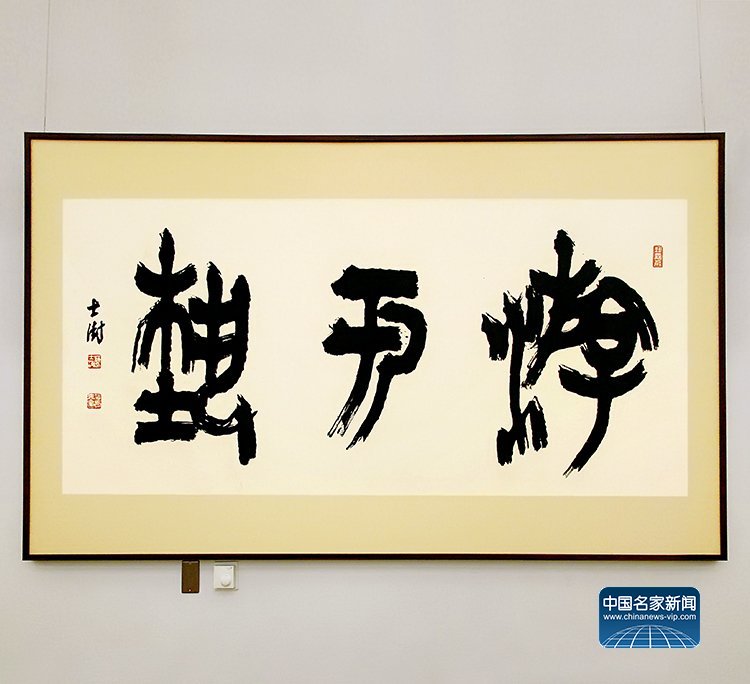 游于藝
士澍
中国名家新闻
www.chinanews-vip.com